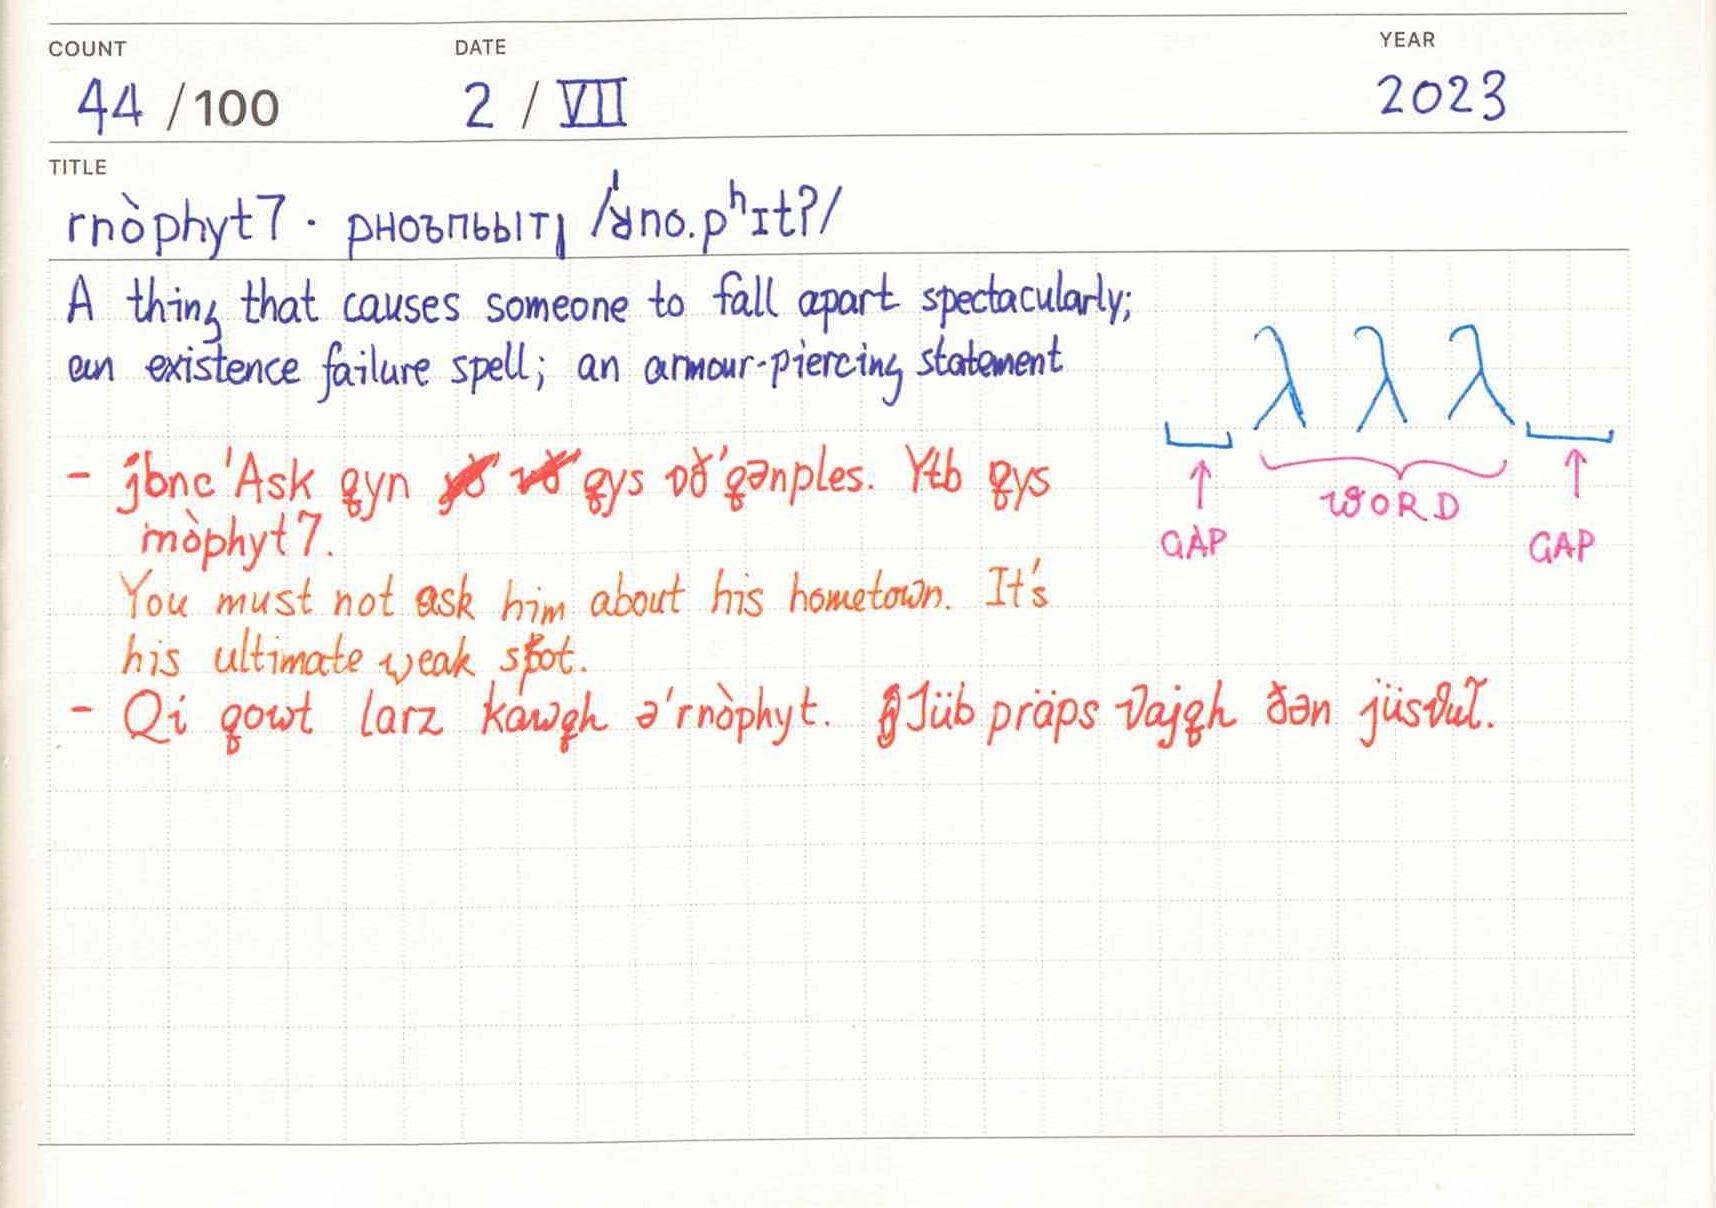 COUNT DATE YEAR
44 /100 2 / VII 2023
TITLE
rnòphyt7 · рноъпьыт| /ʁ̍no.pʰɪtʔ/
A thing that causes someone to fall apart spectacularly;
an existence failure spell; an armour-piercing statement
λ λ λ
- jbnc 'Ask qyn qys ʋð'qənples. Ytb qys
rnòphyt7.
WORD
GAP GAP
You must not ask him about his hometown. It's
his ultimate weak spot.
- Qi qowt larz kawqh ə'rnòphyt. Jüb präps ʋajqh ðən jüsʋul̃.